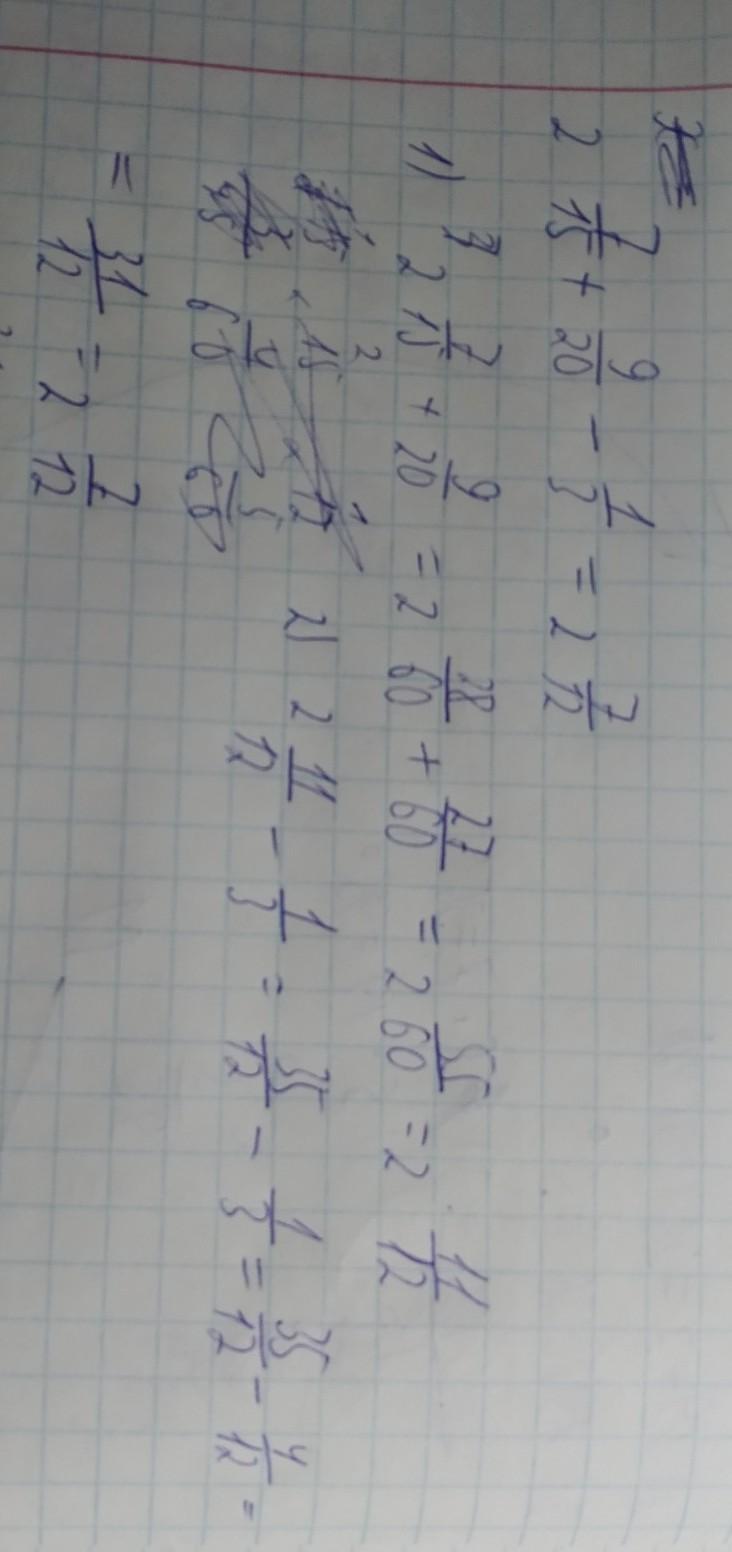 2 7/15 + 9/20 - 1/3 = 2 7/12
1) 2 7/15 + 9/20 = 2 28/60 + 27/60 = 2 55/60 = 2 11/12
2) 2 11/12 - 1/3 = 35/12 - 1/3 = 35/12 - 4/12 =
= 31/12 = 2 7/12